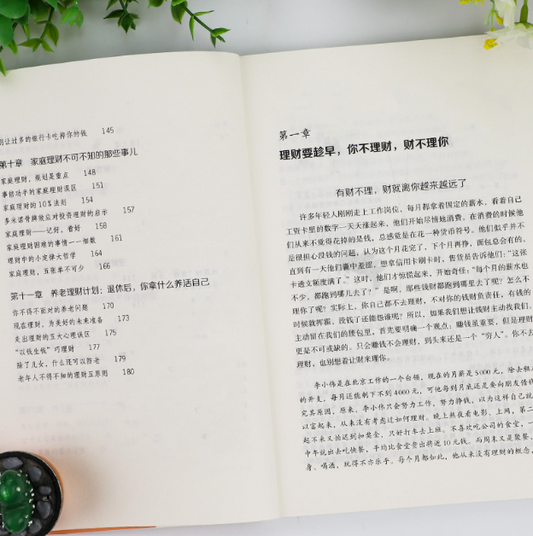 别让过多的银行卡吃掉你的钱 145
第十章 家庭理财不可不知的那些事儿
家庭理财，规划是重点 148
事倍功半的家庭理财误区 151
家庭理财的10%法则 154
多米诺骨牌效应对投资理财的启示 157
家庭理财——记好，看好 158
家庭理财困难的事情——细数 161
理财中的小免律大哲学 164
家庭理财，五张单不可少 166
第十一章 养老理财计划：退休后，你拿什么养活自己
你不得不面对的养老问题 170
现在理财，为美好的未来准备 173
走出理财的五大心理误区 175
“以钱生钱”巧理财 177
除了儿女，什么还可以防老 179
老年人不得不知的理财五原则 180
第一章
理财要趁早，你不理财，财不理你
有财不理，财就离你越来越远了
许多年轻人刚刚走上工作岗位，每月都拿着固定的薪水，看着自己
工资卡里的数字一天天涨起来，他们开始尽情地消费，在消费的时候他
们从来不觉得花掉的是钱，总感觉是在花一种货币符号。他们似乎并不
是很担心没钱的问题，认为这个月花完了，下个月再挣，面包总会有的。
直到有一天他们囊中羞涩，想拿信用卡刷卡时，售货员告诉他们：“这张
卡透支额度满了。”这时，他们才惊慌起来，开始奇怪：“每个月的薪水也
不少，都跑到哪儿去了？”是啊，那些钱都跑到哪里去了呢？怎么不
理你了呢？实际上，你自己都不去理财，不对你的钱财负责任，有钱的
时候就挥霍，没钱了还能怨谁呢？所以，如果我们想让钱财主动找我们，
主动留在我们的腰包里，首先要明确一个观点：赚钱虽重要，但是理财
更是不可或缺的。只会赚钱不会理财，到头来还是一个“穷人”，你不去
理财，也别想着让财来理你。
李小伟是在北京工作的一个白领，现在的月薪是5000元，除去租
的开支，每月还能剩下不到4000元，可他每到月底还是要向朋友借
究其原因，原来，李小伟只会努力工作，努力挣钱，以为这样自己就
以富起来，从来没有考虑过如何理财。晚上熬夜看电影、上网，第二
起不来又怕迟到扣奖金，只好打车去上班。不喜欢吃公司的食堂，一
中午就出去吃快餐，平均比食堂贵出将近10元钱。而周末又是聚餐、
身、喝酒，玩得不亦乐乎。每个月都如此，他从来没有理财的概念，